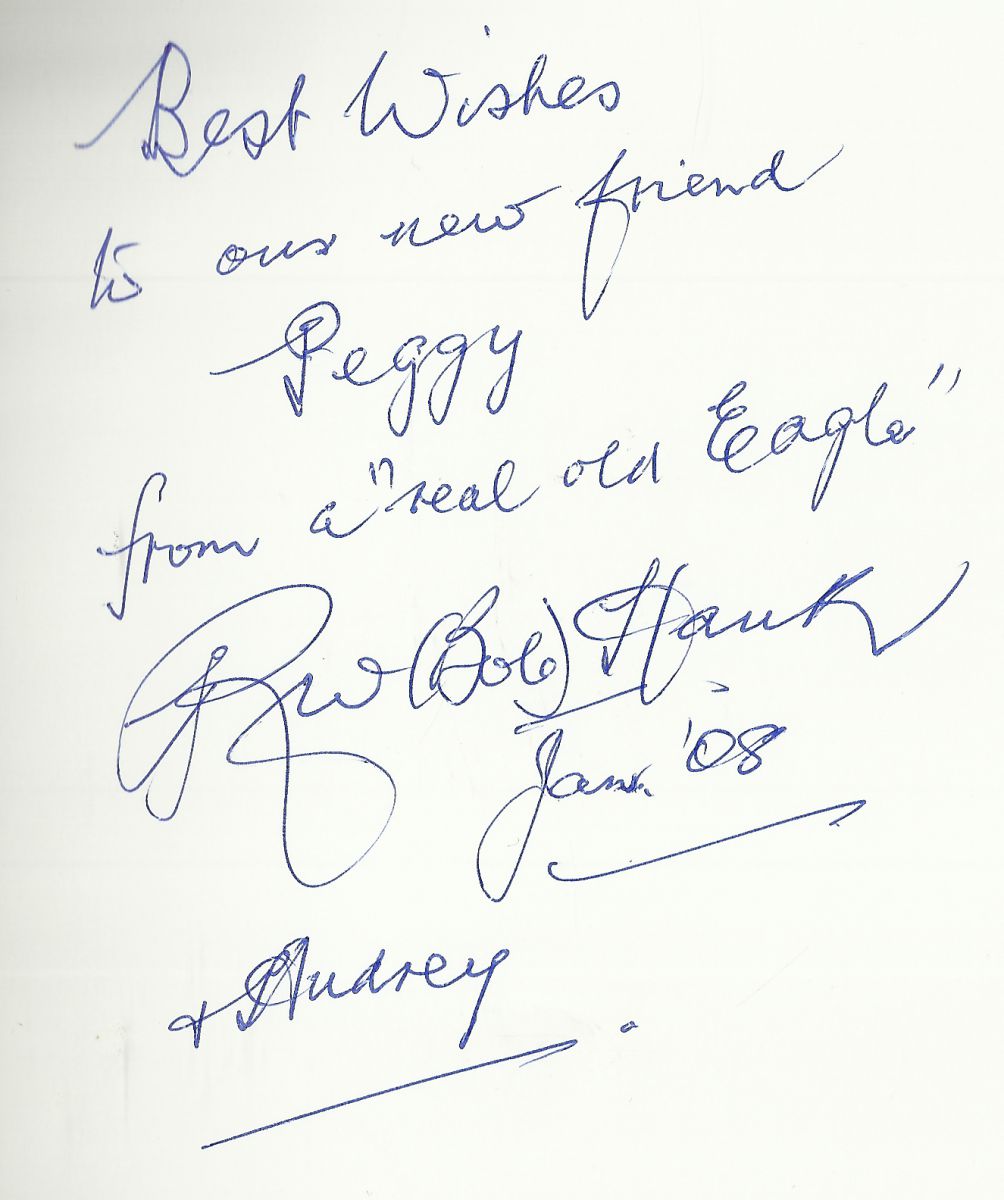 Best Wishes
to our new friend
Peggy
from a "real old Eagle"
(Bob) Hauk
Jan. '08
+ Audrey